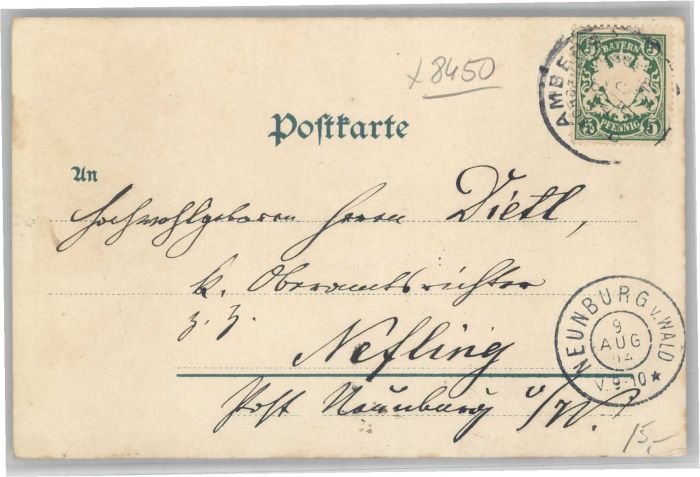 x 8450
BAYERN
5 5
3 5
PFENNIG
AMBE
Postkarte
An
Hochwohlgeboren Herrn Dietl,
k. Oberamtsrichter
z. Z.
Nefling
Post Neunburg v/W.
NEUNBURG v. WALD
9
AUG
04
V. 9-10 ★
15,-